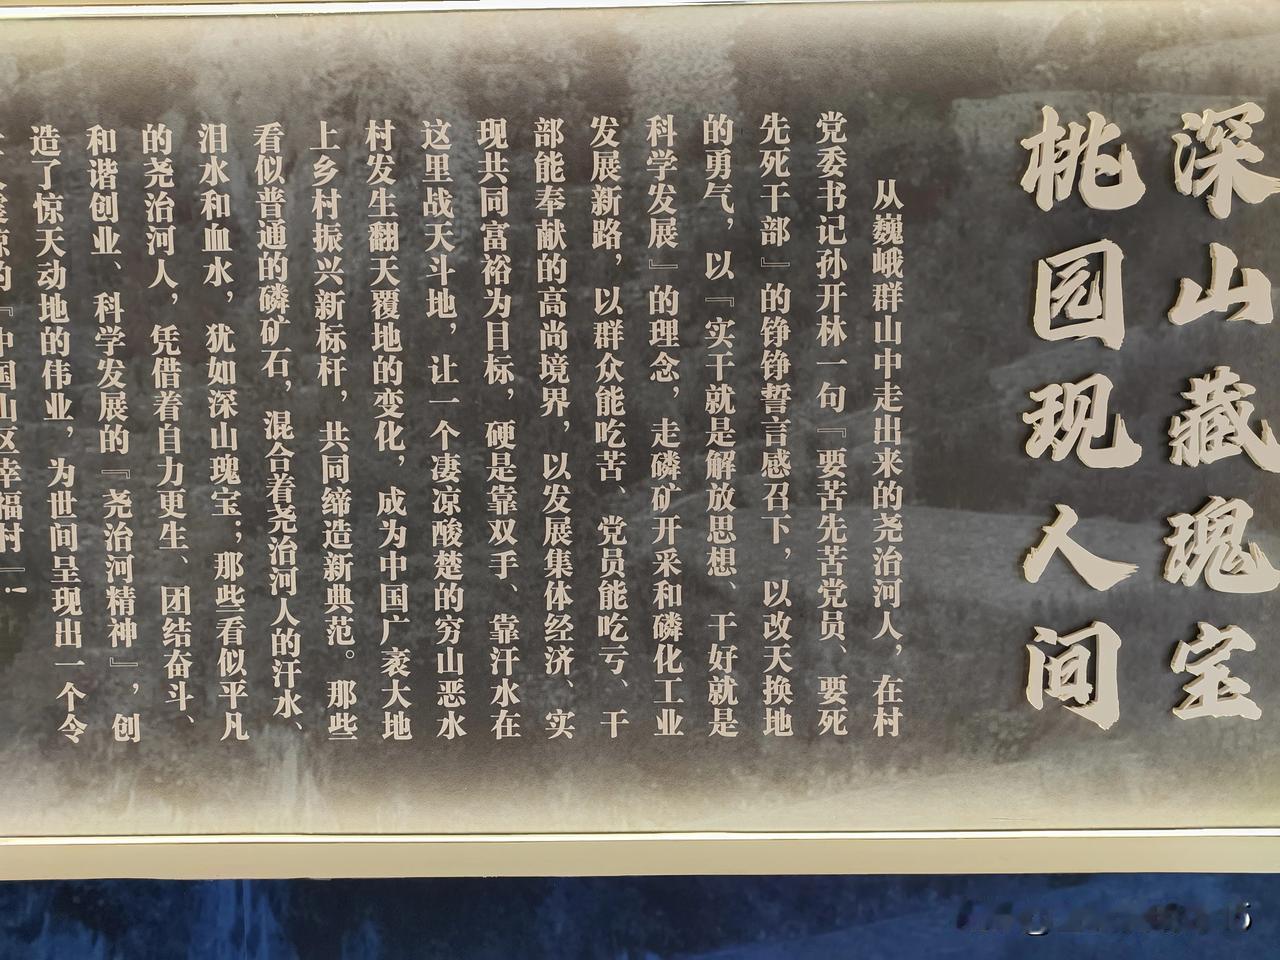 深山藏瑰宝
桃园现人间
从巍峨群山中走出来的尧治河人，在村
党委书记孙开林一句『要苦先苦党员、要死
先死干部』的铮铮誓言感召下，以改天换地
的勇气，以『实干就是解放思想、干好就是
科学发展』的理念，走磷矿开采和磷化工业
发展新路，以群众能吃苦、党员能吃亏、干
部能奉献的高尚境界，以发展集体经济、实
现共同富裕为目标，硬是靠双手、靠汗水在
这里战天斗地，让一个凄凉酸楚的穷山恶水
村发生翻天覆地的变化，成为中国广袤大地
上乡村振兴新标杆，共同缔造新典范。那些
看似普通的磷矿石，混合着尧治河人的汗水、
泪水和血水，犹如深山瑰宝；那些看似平凡
的尧治河人，凭借着自力更生、团结奋斗、
和谐创业、科学发展的『尧治河精神』，创
造了惊天动地的伟业，为世间呈现出一个令
的『中国山区幸福村』！